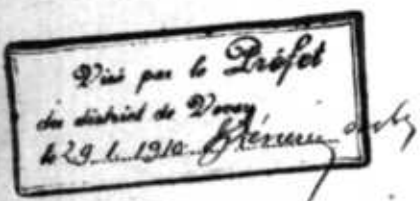 Visé par le Préfet
du district de Vevey
le 29.1.1910